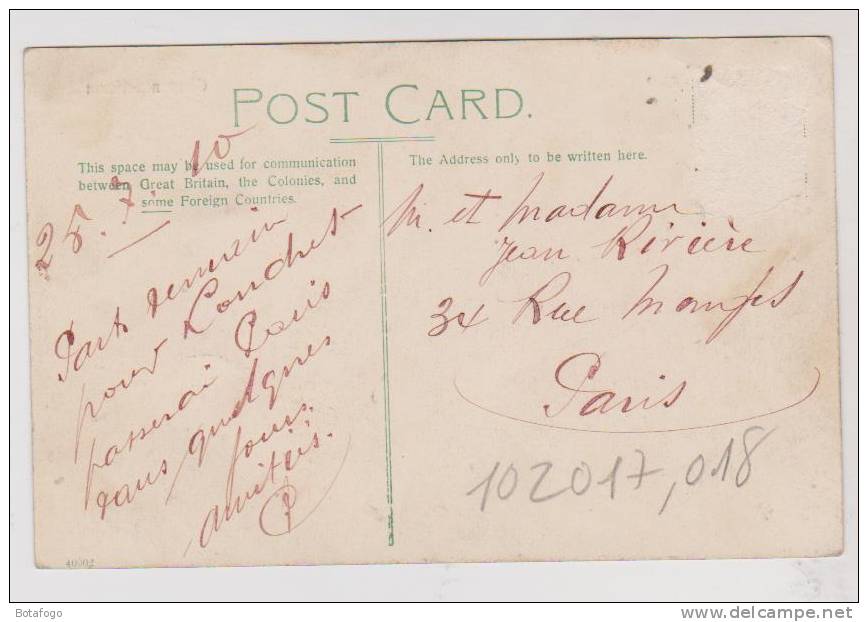 POST CARD.
This space may be used for communication
between Great Britain, the Colonies, and
some Foreign Countries.
The Address only to be written here.
25.7.10
Pars demain
pour Londres
passerai Paris
dans quelques
jours.
amitiés.
M. et Madame
Jean Rivière
34 Rue
Paris
102017,018
40002
Botafogo
www.delcampe.net